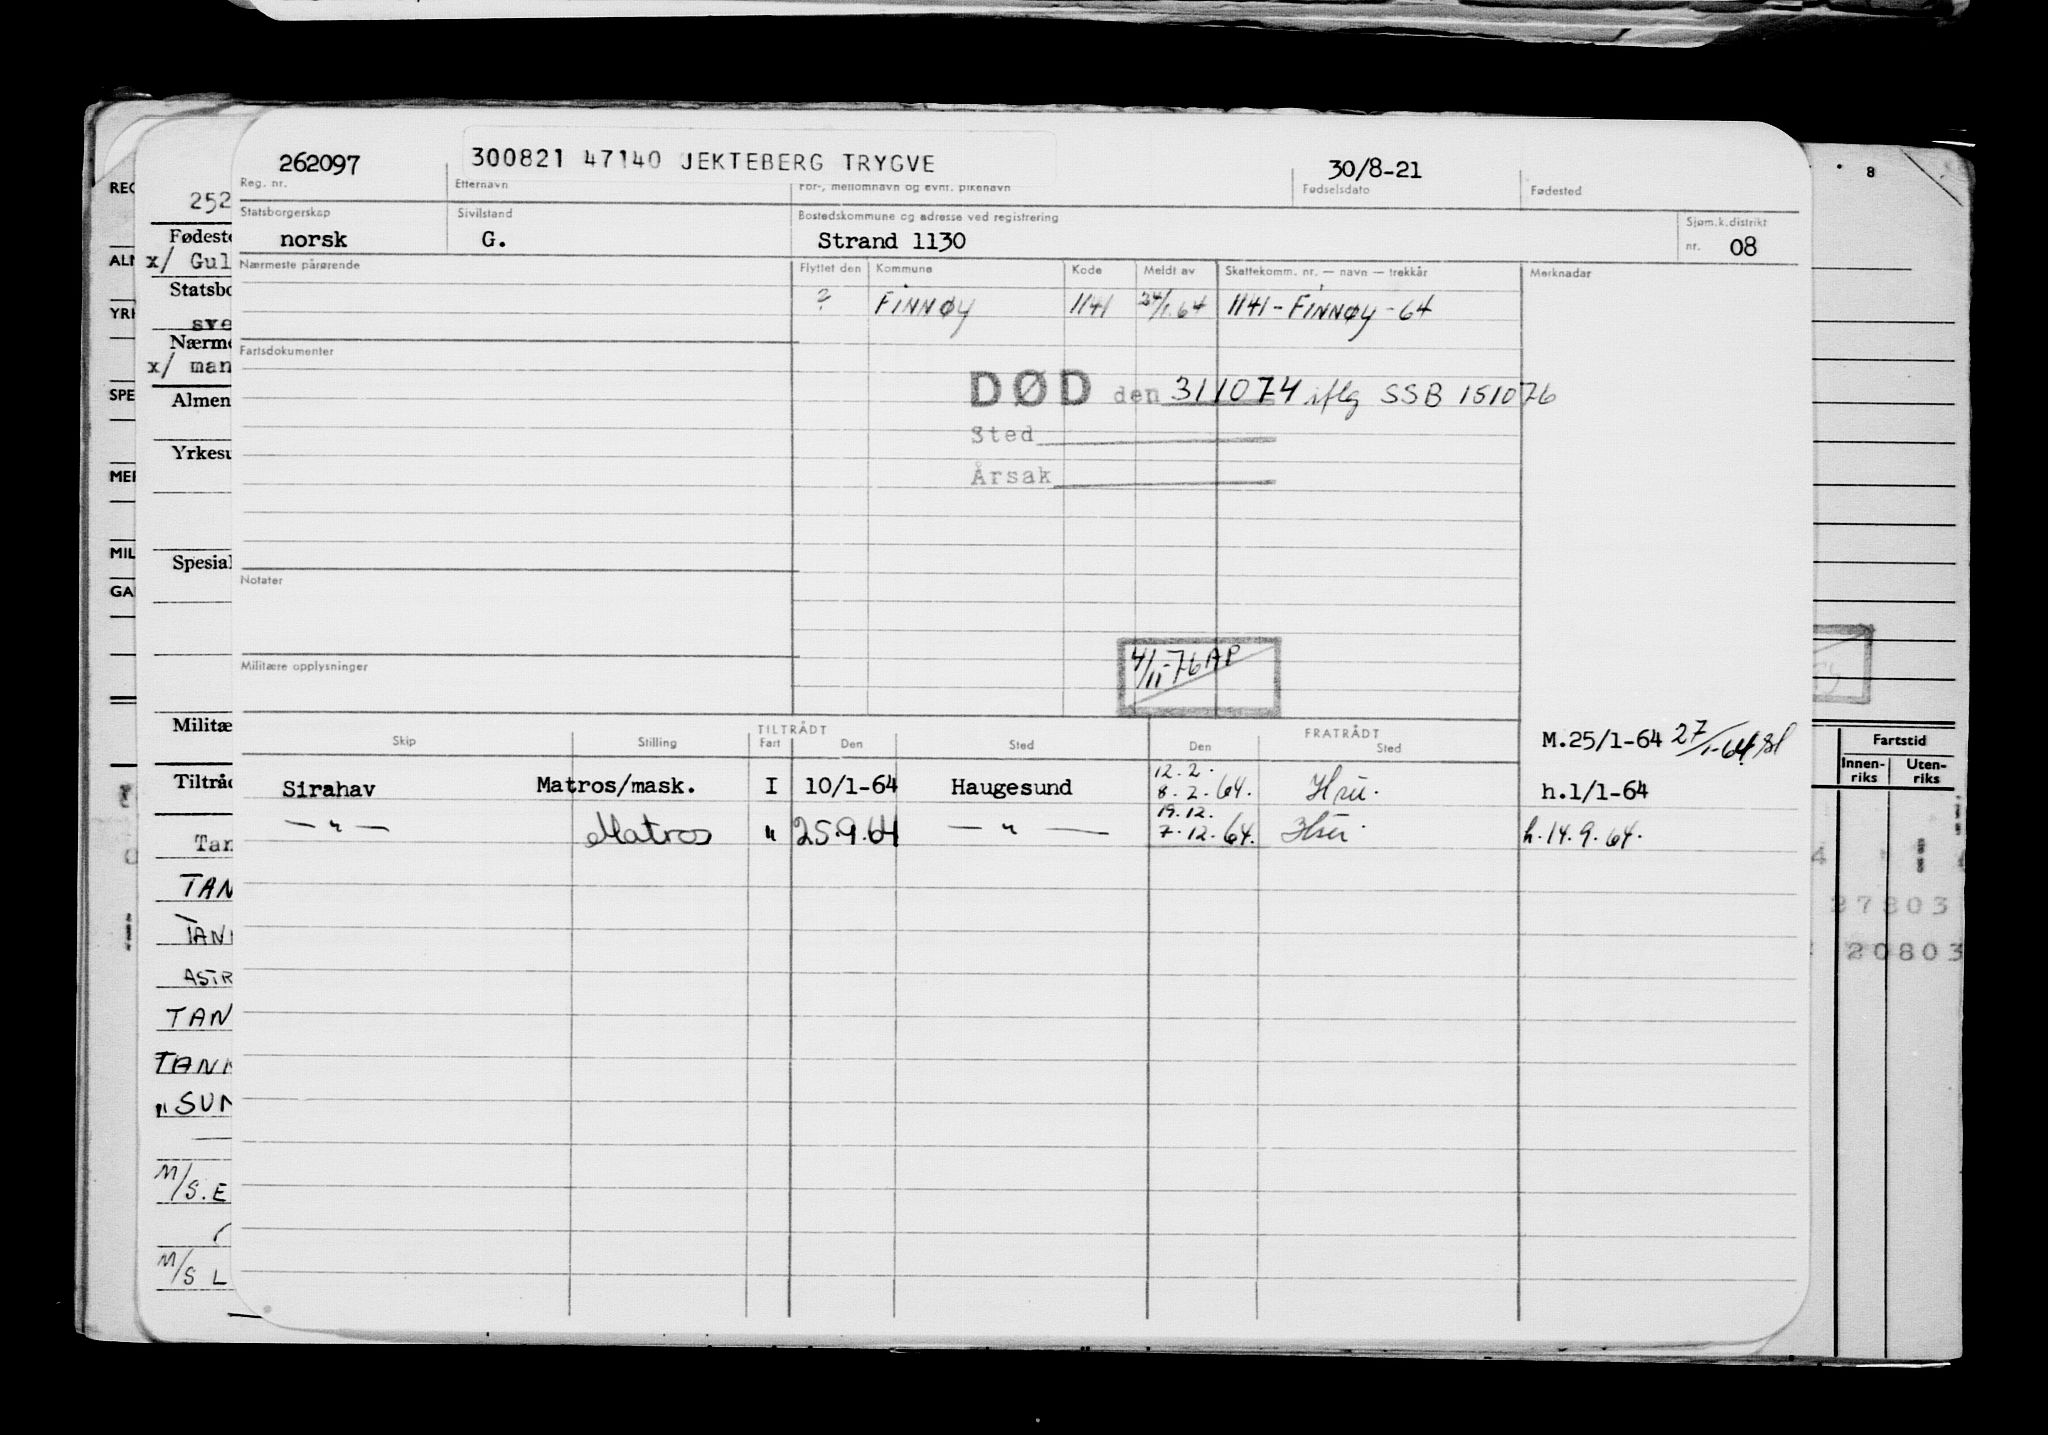 262097 300821 47140 JEKTEBERG TRYGVE 30/8-21
Reg. nr. Etternavn For-, mellomnavn og evnt. pikenavn Fødselsdato Fødested
Statsborgerskap Sivilstand Bostedskommune og adresse ved registrering Sjøm.k.distrikt
norsk G. Strand 1130 nr. 08
Nærmeste pårørende Flyttet den Kommune Kode Meldt av Skattekomm. nr. — navn — trekkår Merknader
? FINNØY 1141 24/1.64 1141-FINNØY-64
Fartsdokumenter
DØD den 311074 iflg SSB 151076
Sted
Årsak
Notater
4/11-76 AP
Militære opplysninger
Skip Stilling TILTRÅDT Fart Den Sted FRATRÅDT Den Sted
M.25/1-64 27/1-64
12.2.
Sirahav Matros/mask. I 10/1-64 Haugesund 8.2.64. h.1/1-64
19.12.
— " — Matros " 25.9.64 — " — 7.12.64. h.14.9.64.
REG
252
Fødeste
ALM x/ Gul
Statsbo
YRK sve
Nærme
x/ man
SPE Almen
Yrkesu
MER
MIL Spesial
GA
Militæ
Tiltråd
Tan
TAN
TAN
ASTR
TAN
TAN
"SUN
M/S.E
M/S L
8
Fartstid
Innen-riks Uten-riks
4
27803
20803